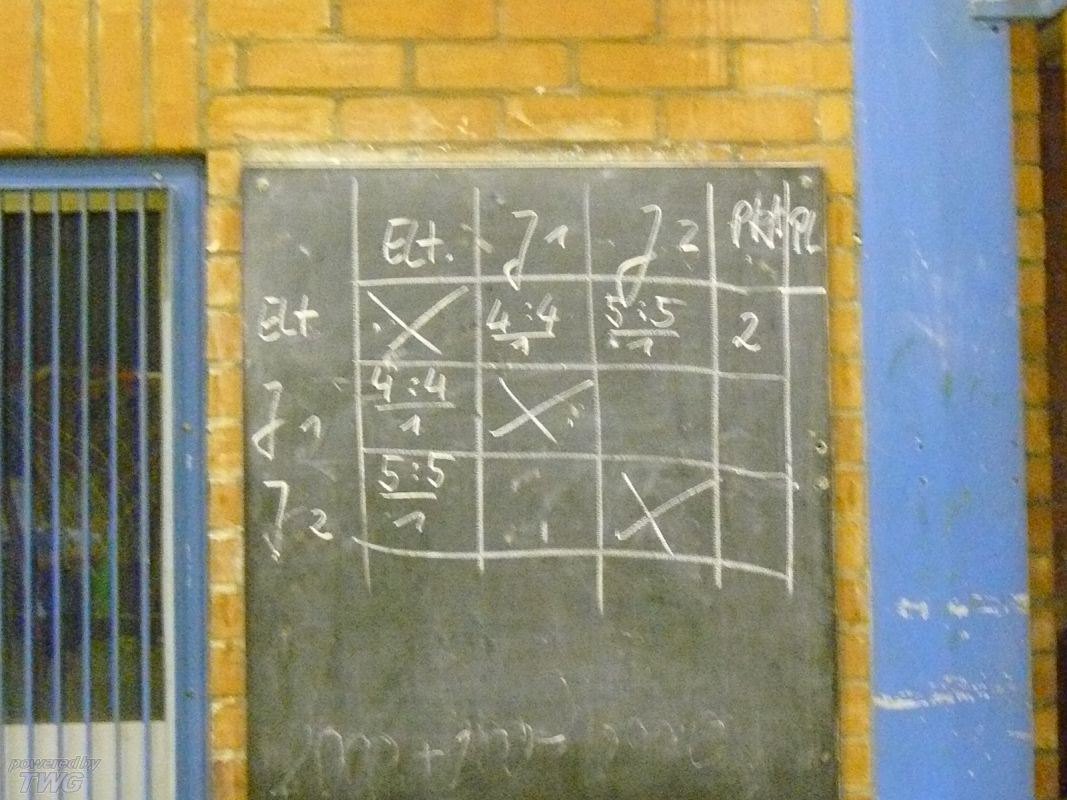 Elt. J 1 J 2 PKT PL
Elt 4:4 5:5 2
1 1
J 1 4:4
1
J 2 5:5
1
powered by
TWG